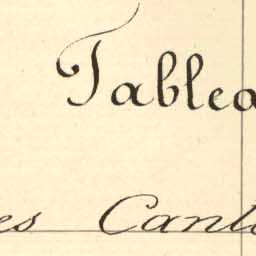 Tablea
es Canto